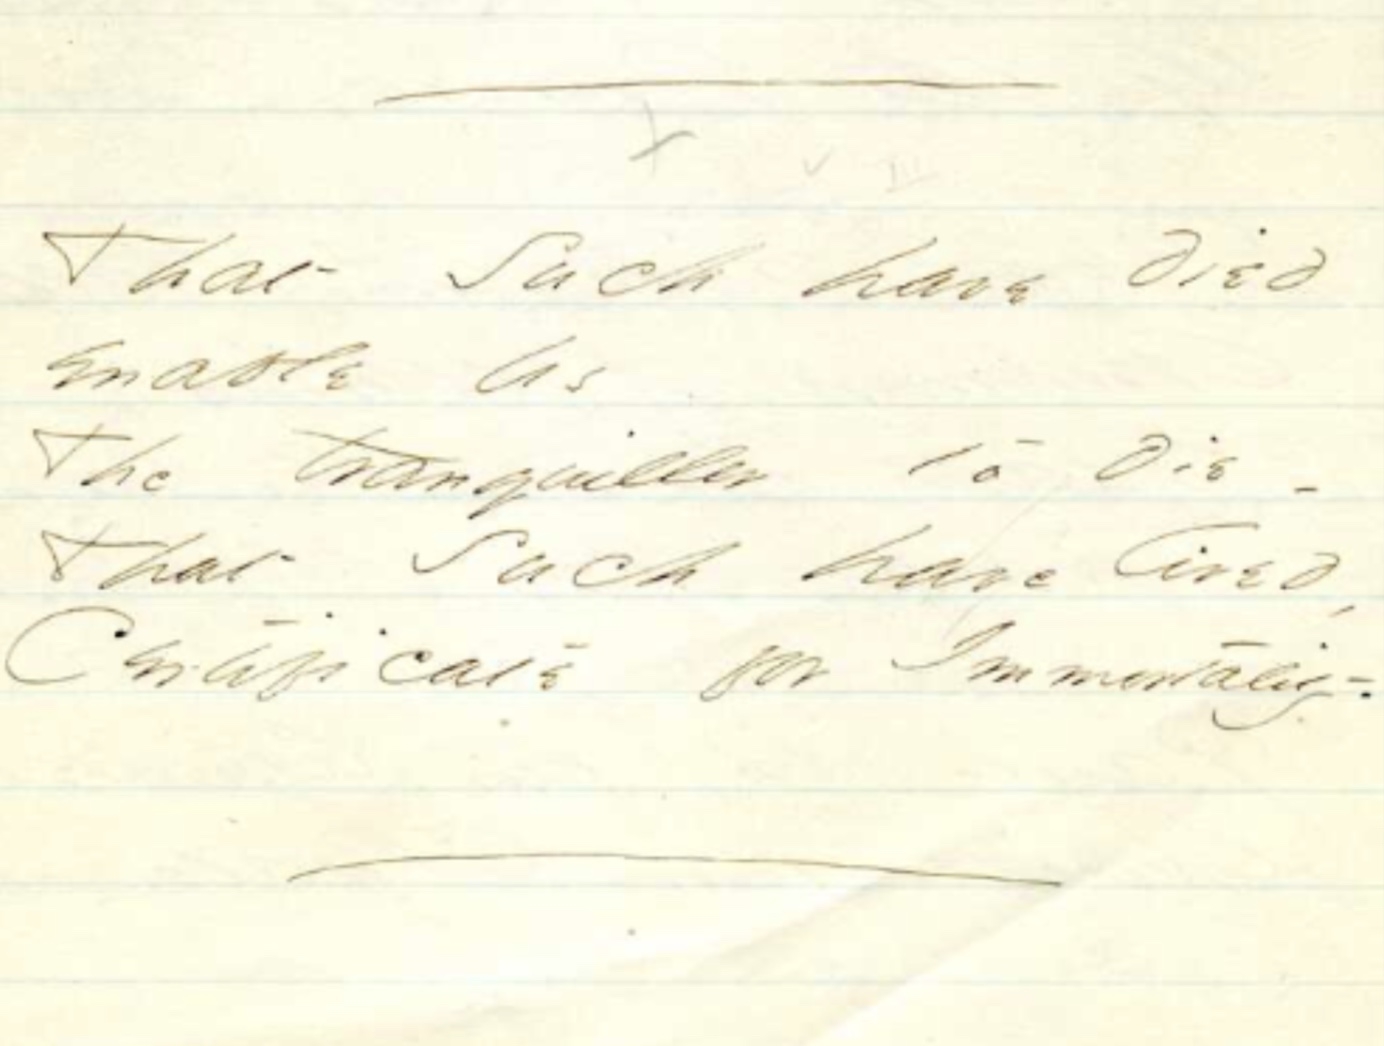 That Such have died
enable Us
The tranquiller to die -
That Such have lived,
Certificate for Immortality.